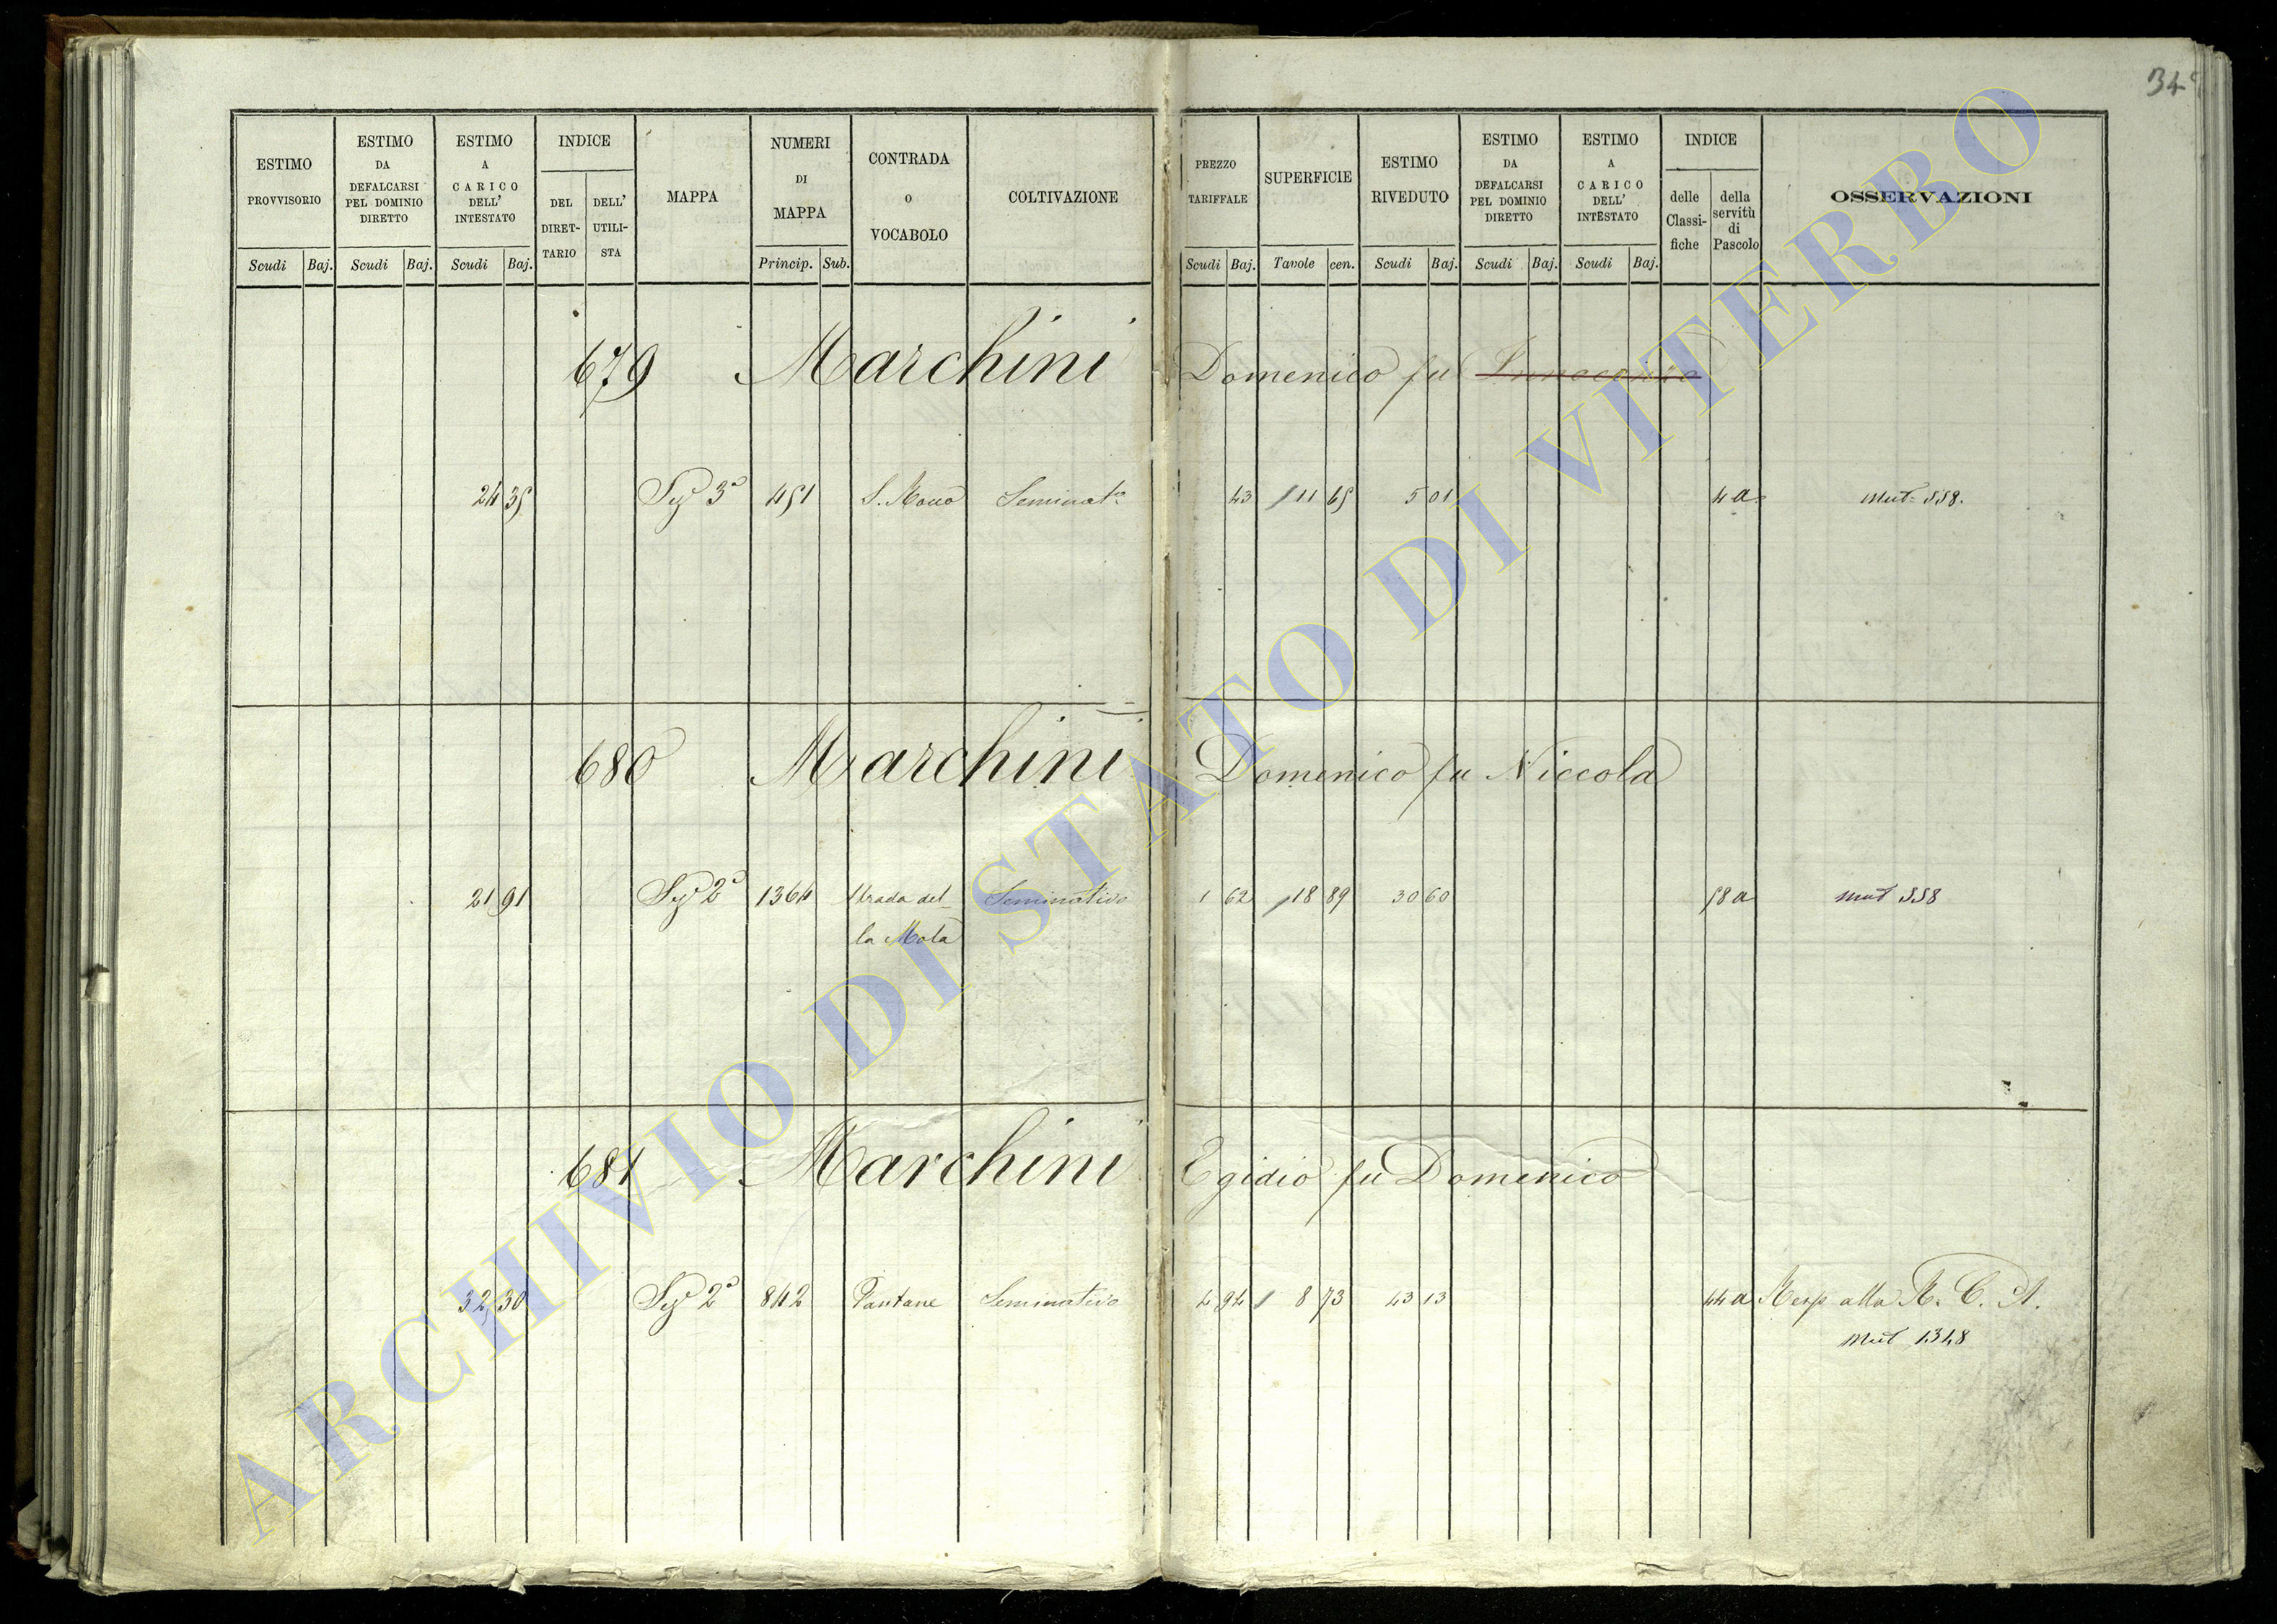 34
ESTIMO PROVVISORIO
ESTIMO DA DEFALCARSI PEL DOMINIO DIRETTO
ESTIMO A CARICO DELL' INTESTATO
INDICE
DEL DIRET-TARIO
DELL' UTILI-STA
MAPPA
NUMERI DI MAPPA
CONTRADA o VOCABOLO
COLTIVAZIONE
PREZZO TARIFFALE
SUPERFICIE
ESTIMO RIVEDUTO
ESTIMO DA DEFALCARSI PEL DOMINIO DIRETTO
ESTIMO A CARICO DELL' INTESTATO
INDICE
delle Classi-fiche
della servitù di Pascolo
OSSERVAZIONI
Scudi Baj. Scudi Baj. Scudi Baj. Princip. Sub. Scudi Baj. Tavole cen. Scudi Baj. Scudi Baj. Scudi Baj.
679 Marchini Domenico fu Innocenzo
24 35 Sez 3a 451 S. Rocco Seminato 43 11 65 5 01 4 a Mut. 558.
680 Marchini Domenico fu Niccola
21 91 Sez 2a 1364 Strada del- Seminativo 1 62 18 89 30 60 58 a Mut 558
la Mola
681 Marchini Egidio fu Domenico
32 30 Sez 2a 842 Pantane Seminativo 4 94 8 73 43 13 44 a Resp alla R. C. A.
Mut 1348
ARCHIVIO DI STATO DI VITERBO